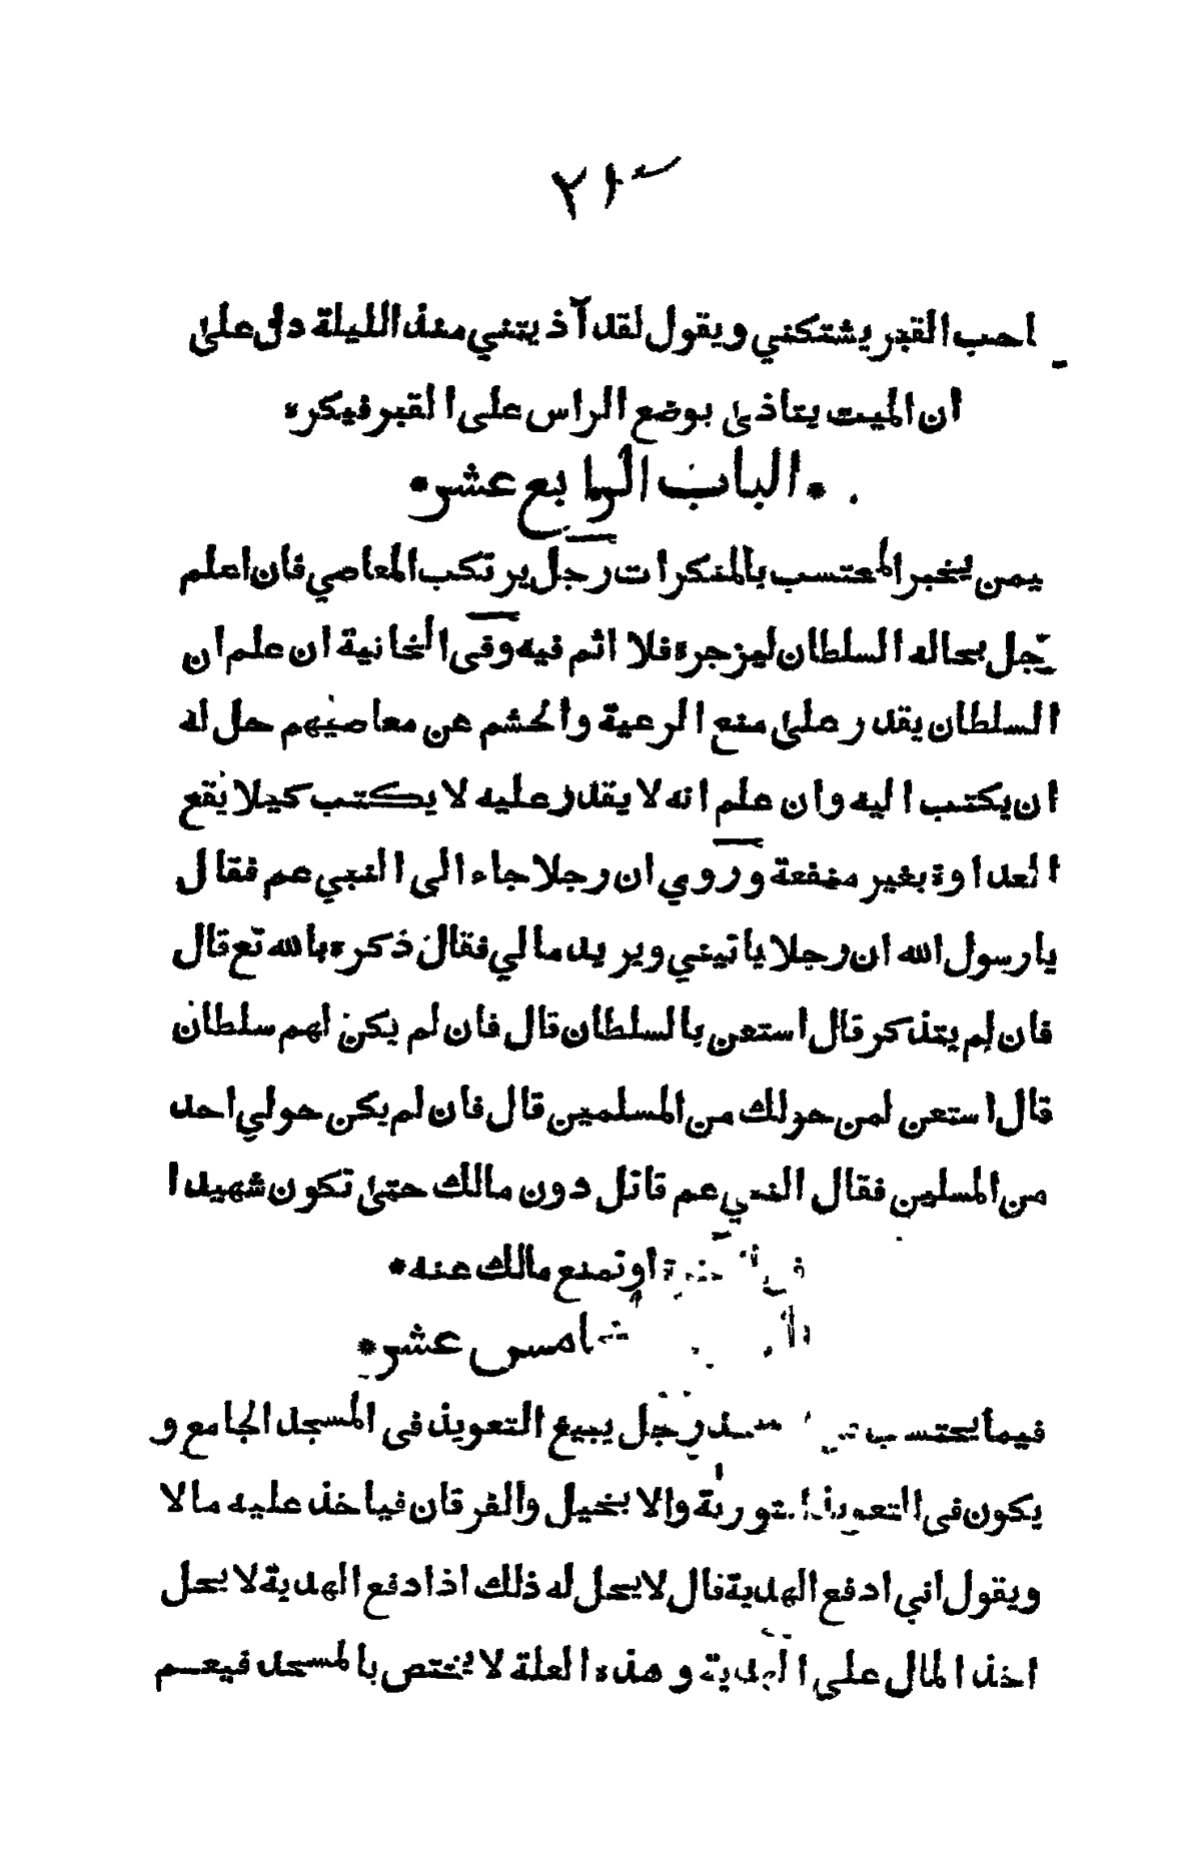 احب القبر يشتكني ويقول لقد آذيتني منذ الليلة دل على
ان الميت يتاذى بوضع الراس على القبر فيكره
* الباب الرابع عشر *
يمن يخبر المحتسب بالمنكرات رجل يرتكب المعاصي فان اعلم
رجل بحاله السلطان ليزجره فلا اثم فيه وفى الخانية ان علم ان
السلطان يقدر على منع الرعية والحشم عن معاصيهم حل له
ان يكتب اليه وان علم انه لا يقدر عليه لا يكتب كيلا يقع
العداوة بغير منفعة وروي ان رجلا جاء الى النبي عم فقال
يا رسول الله ان رجلا ياتيني ويريد مالي فقال ذكره بالله تع قال
فان لم يتذكر قال استعن بالسلطان قال فان لم يكن لهم سلطان
قال استعن لمن حولك من المسلمين قال فان لم يكن حولي احد
من المسلمين فقال النبي عم قاتل دون مالك حتى تكون شهيدا
او تمنع مالك عنه *
خامس عشر *
فيما يحتسب رجل يبيع التعويذ فى المسجد الجامع و
يكون فى التعويذ التورية والا بخيل والفرقان فياخذ عليه مالا
ويقول اني ادفع الهدية قال لا يحل له ذلك اذا دفع الهدية لا يحل
اخذ المال على الهدية وهذه العلة لا يختص بالمسجد فيعم